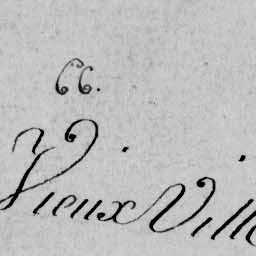 66.
Vieux Vill